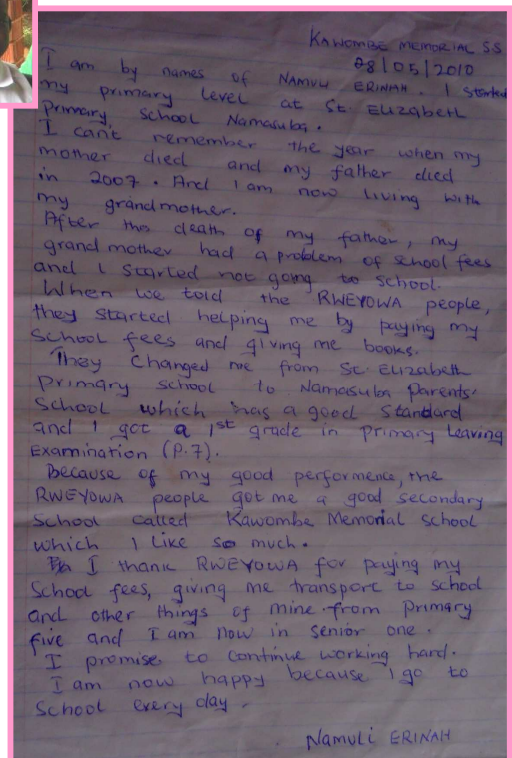 KAWOMBE MEMORIAL S.S
28/05/2010
I am by names of NAMULI ERINAH. I Started
my primary level at St. ELIZABETH
primary school Namasuba.
I can't remember the year when my
mother died and my father died
in 2007. And I am now living with
my grandmother.
After the death of my father, my
grandmother had a problem of school fees
and I started not going to school.
When we told the RWEYOWA people,
they started helping me by paying my
school fees and giving me books.
They changed me from St. ELIZABETH
primary school to Namasuba parents'
school which has a good standard
and I got a 1st grade in primary Leaving
Examination (P.7).
Because of my good performence, the
RWEYOWA people got me a good secondary
school called Kawombe Memorial school
which I like so much.
I thank RWEYOWA for paying my
school fees, giving me transport to school
and other things of mine from primary
five and I am now in senior one.
I promise to continue working hard.
I am now happy because I go to
school every day.
NAMULI ERINAH